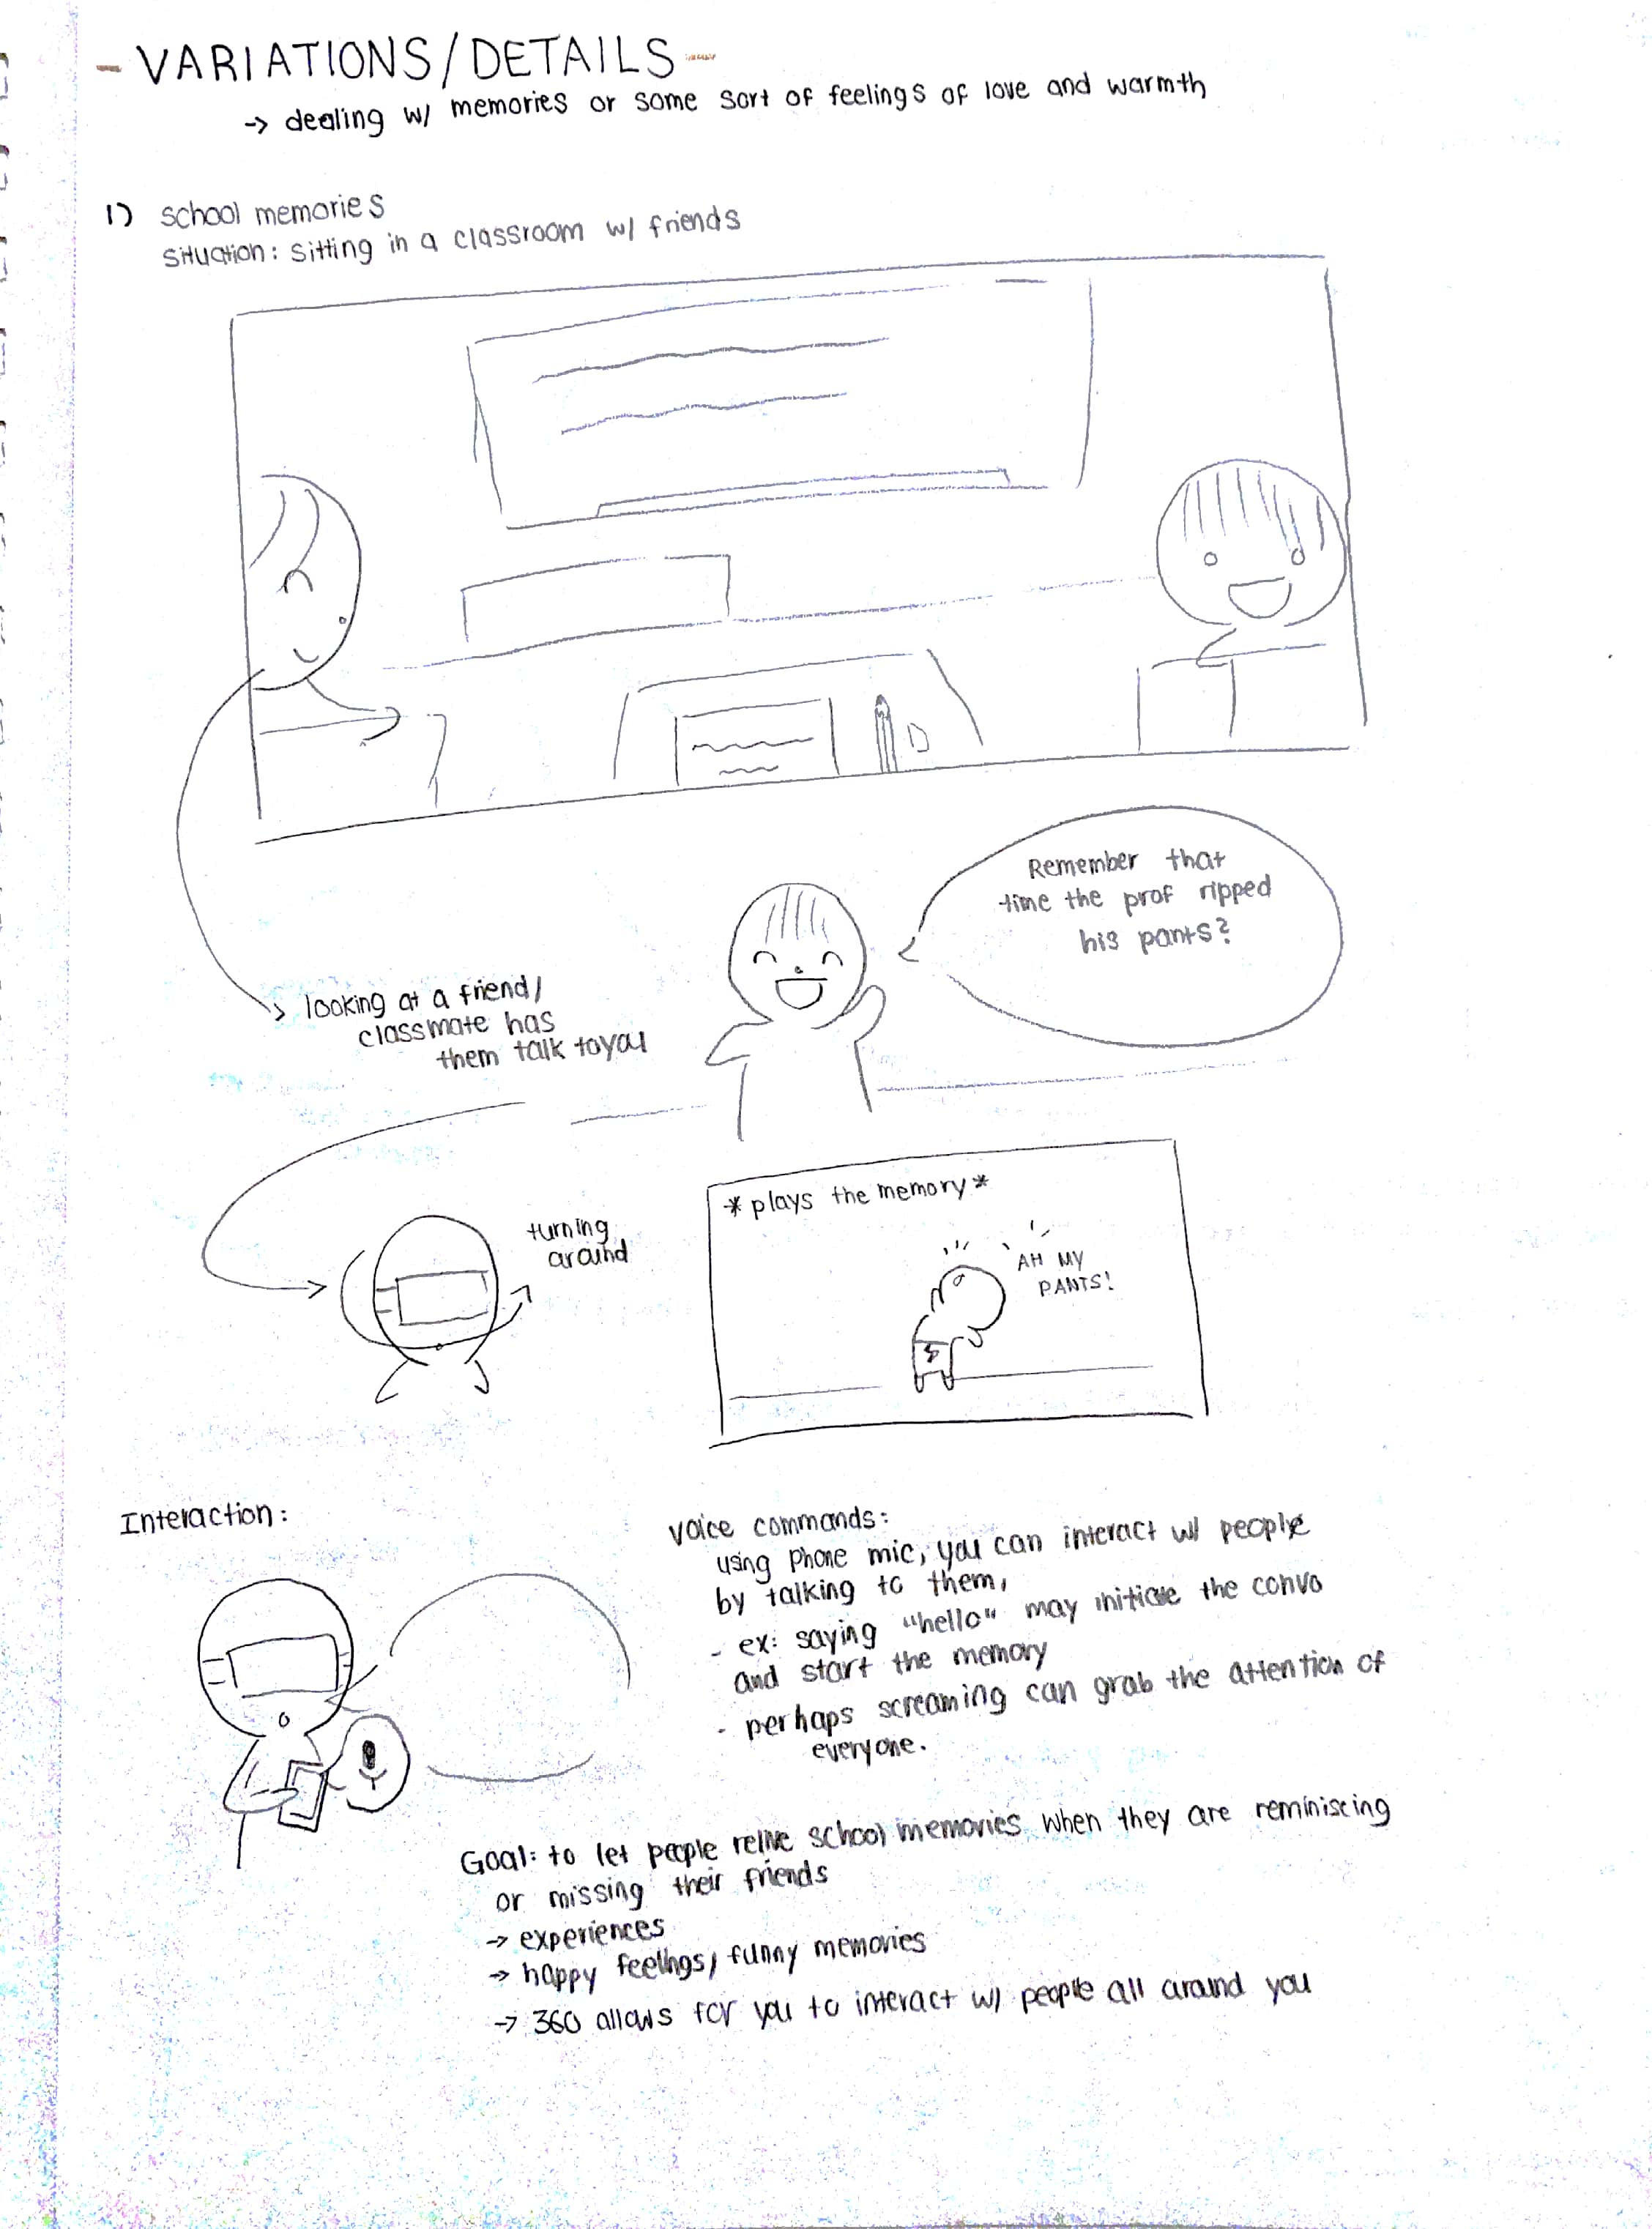 - VARIATIONS/DETAILS
→ dealing w/ memories or some sort of feelings of love and warmth
1) school memories
situation: sitting in a classroom w/ friends
Remember that
time the prof ripped
his pants?
looking at a friend/
classmate has
them talk to you
turning
around
*plays the memory*
AH MY
PANTS!
Interaction:
voice commands:
using phone mic, you can interact w/ people
by talking to them,
- ex: saying "hello" may initiate the convo
and start the memory
- perhaps screaming can grab the attention of
everyone.
Goal: to let people relive school memories when they are reminiscing
or missing their friends
→ experiences
→ happy feelings, funny memories
→ 360 allows for you to interact w/ people all around you